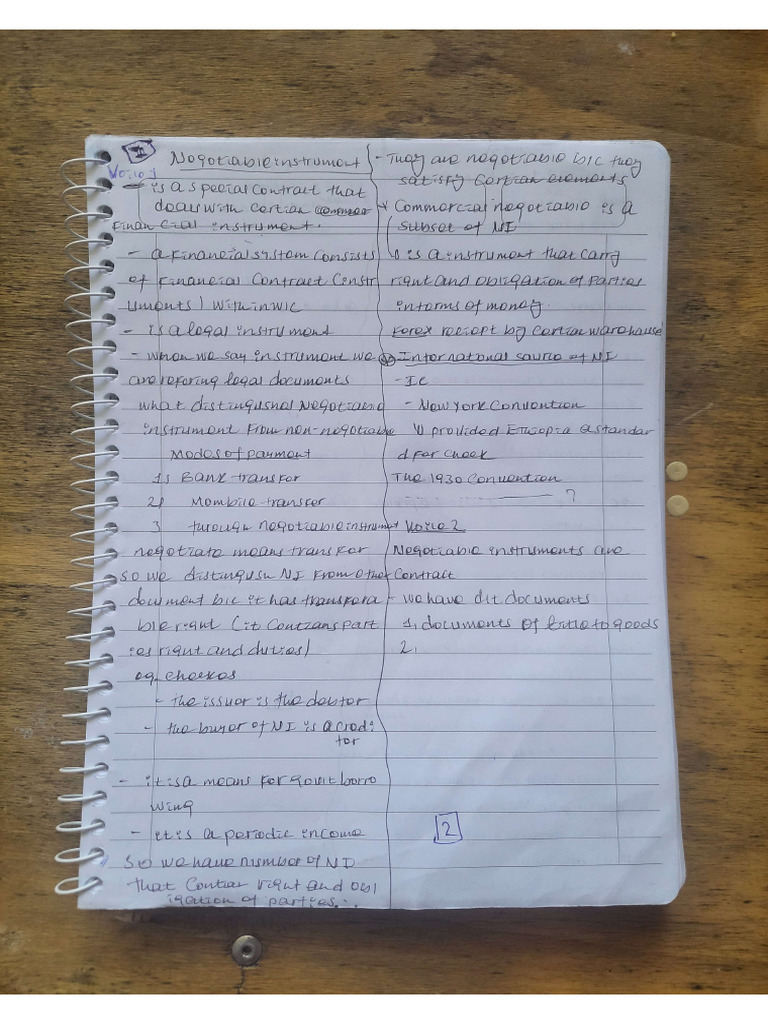 II
Negotiable instrument
Voice 1
is a special contract that
deals with certian
financial instrument.
- a financial system consists
of financial contract (instr
uments) within wlc
- is a legal instrument
- when we say instrument we
are refering legal documents
what distingushes Negotiable
instrument from non-negotiable
Modes of payment
1) Bank transfer
2) Mombile transfer
3 through negotiable instrument
negotiate means transfer
so we distingush NI from other
document b/c it has transfera
ble right (it contians part
ies right and duties)
eg. checkes
- the issuer is the debtor
- the buyer of NI is a credi
tor
- it is a means for gov't borro
wing
- it is a periodic income
so we have number of NI
that contian right and obl
igation of parties...
- They are negotiable b/c they
satisfy certian elements
* Commercial negotiable is a
subset of NI
is a instrument that carry
right and obligation of parties
interms of money.
Forex reciept by certian warehouse
International source of NI
- Ic
- New York Convention
provided Ethiopia a standar
d for check
The 1930 Convention
?
Voice 2
Negotiable instruments are
Contract
- we have dif documents
1, documents of title to goods
2,
2